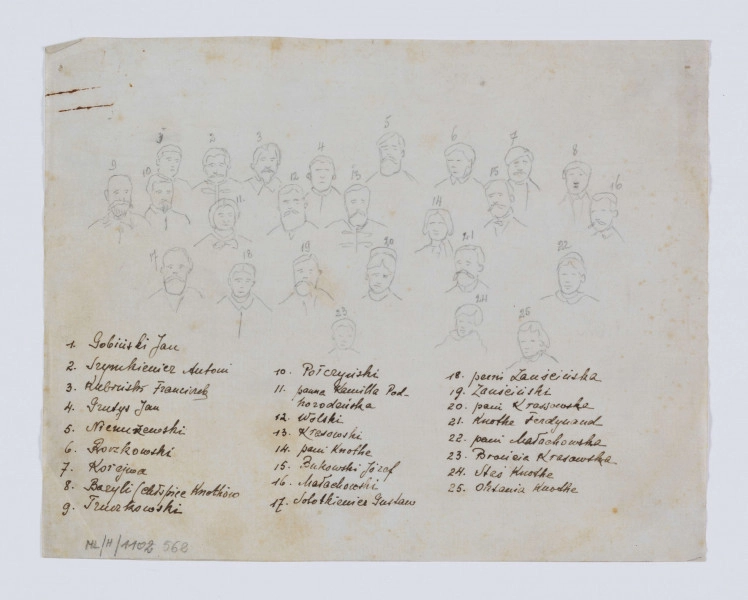 5
1 2 3 4 6 7 8
9 10 12 13 15 16
11 14
17 18 19 20 21 22
23 24 25
1. Gobiński Jan
2. Szymkiewicz Antoni
3. Franciszek
4. Grutys Jan
5. Niemuszewski
6. Roszkowski
7. Korejwa
8. Bazyli (chłopiec Knothów
9. Trwakowski
10. Połczyński
11. panna Kamilla Pod-
horodeńska
12. Wolski
13. Krasowski
14. pani Knothe
15. Bukowski Józef
16. Małachowski
17. Gustaw
18. pani Łanścińska
19. Łanściński
20. pani Krasowska
21. Knothe Ferdynand
22. pani Małachowska
23. Bronicia Krasowska
24. Staś Knothe
25. Oktawia Knothe
ML/H/1102 568